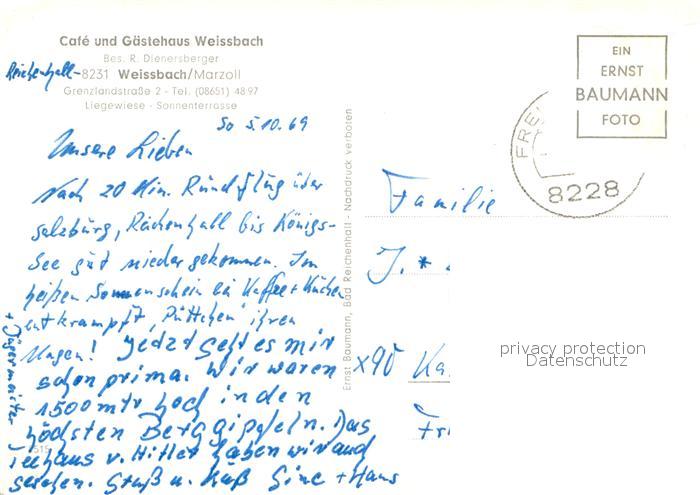 Café und Gästehaus Weissbach
Bes. R. Dienersberger
Reichenhall-8231 Weissbach/Marzoll
Grenzlandstraße 2 - Tel. (08651) 4897
Liegewiese - Sonnenterrasse
So 5.10.69
Unsere Lieben
Nach 20 Min. Rundflug über
Salzburg, Reichenhall bis Königs-
See gut nieder gekommen. Im
heißen Sonnenschein bei Kaffee + Kuchen
entkrampft, "Püttchen" ihren
Magen! Jetzt geht es mir
schon prima. Wir waren
1500 mtr hoch in den
höchsten Berggipfeln. Das
Teehaus v. Hitler haben wir auch
gesehen. Gruß u. Kuß Gine + Hans
+ Jägermeister
Ernst Baumann, Bad Reichenhall - Nachdruck verboten
EIN
ERNST
BAUMANN
FOTO
FRE
8228
Familie
J. *
x90 Ka
Fr
privacy protection
Datenschutz